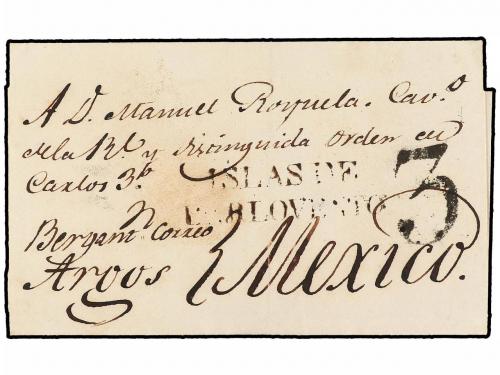 A D.n Manuel Royuela. Cav.o
de la R.l y distinguida orden de
Carlos 3.o
ISLAS DE
BARLOVENTO
3
Bergant.n Correo
Argos
Mexico.